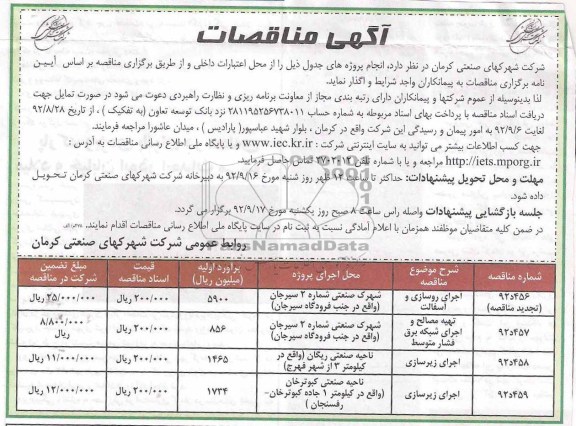 آگهی مناقصات
شرکت شهرکهای صنعتی کرمان در نظر دارد، انجام پروژه های جدول ذیل را از محل اعتبارات داخلی و از طریق برگزاری مناقصه بر اساس آیین
نامه برگزاری مناقصات به پیمانکاران واجد شرایط و اگذار نماید.
لذا بدینوسیله از عموم شرکتها و پیمانکاران دارای رتبه بندی مجاز از معاونت برنامه ریزی و نظارت راهبردی دعوت می شود در صورت تمایل جهت
دریافت اسناد مناقصه با پرداخت بهای اسناد مربوطه به شماره حساب ۲۸۱۱۹۵۲۵۶۷۳۸۰۱۱ نزد بانک توسعه تعاون (به تفکیک) ، از تاریخ ۹۲/۸/۲۸
لغایت ۹۲/۹/۶ به امور پیمان و رسیدگی این شرکت واقع در کرمان ، بلوار شهید عباسپور( پارادیس ) ، میدان عاشورا مراجعه فرمایند.
جهت کسب اطلاعات بیشتر می توانید به سایت اینترنتی شرکت : www.iec.kr.ir و یا پایگاه ملی اطلاع رسانی مناقصات به آدرس :
http://iets.mporg.ir مراجعه و یا با شماره تلفن تماس حاصل فرمایید.
مهلت و محل تحویل پیشنهادات: حداکثر تا ساعت ۱۴ ظهر روز شنبه مورخ ۹۲/۹/۱۶ به دبیرخانه شرکت شهرکهای صنعتی کرمان تحویل
داده شود.
جلسه بازگشایی پیشنهادات واصله راس ساعت ۸ صبح روز یکشنبه مورخ ۹۲/۹/۱۷ برگزار می گردد.
در ضمن کلیه متقاضیون موظفند همزمان با اعلام آمادگی نسبت به ثبت نام در سایت پایگاه ملی اطلاع رسانی مناقصات اقدام نمایند.
روابط عمومی شرکت شهرکهای صنعتی کرمان
شماره مناقصه | شرح موضوع مناقصه | محل اجرای پروژه | برآورد اولیه (میلیون ریال) | قیمت اسناد مناقصه | مبلغ تضمین شرکت در مناقصه
۹۲د۴۵۶ (تجدید مناقصه) | اجرای روسازی و آسفالت | شهرک صنعتی شماره ۲ سیرجان (واقع در جنب فرودگاه سیرجان) | ۵۹۰۰ | ۲۰۰/۰۰۰ ریال | ۲۵/۰۰۰/۰۰۰ ریال
۹۲د۴۵۷ | تهیه مصالح و اجرای شبکه برق فشار متوسط | شهرک صنعتی شماره ۲ سیرجان (واقع در جنب فرودگاه سیرجان) | ۸۵۶ | ۲۰۰/۰۰۰ ریال | ۸/۸۰۰/۰۰۰ ریال
۹۲د۴۵۸ | اجرای زیرسازی | ناحیه صنعتی ریگان (واقع در کیلومتر ۳ از شهر فهرج) | ۱۴۶۵ | ۲۰۰/۰۰۰ ریال | ۱۱/۰۰۰/۰۰۰ ریال
۹۲د۴۵۹ | اجرای زیرسازی | ناحیه صنعتی کبوترخان (واقع در کیلومتر ۱ جاده کبوترخان- رفسنجان ) | ۱۷۳۴ | ۲۰۰/۰۰۰ ریال | ۱۲/۰۰۰/۰۰۰ ریال